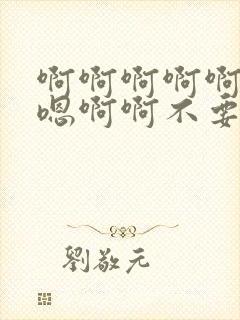 啊啊啊啊啊
嗯啊啊不要
劉敬元